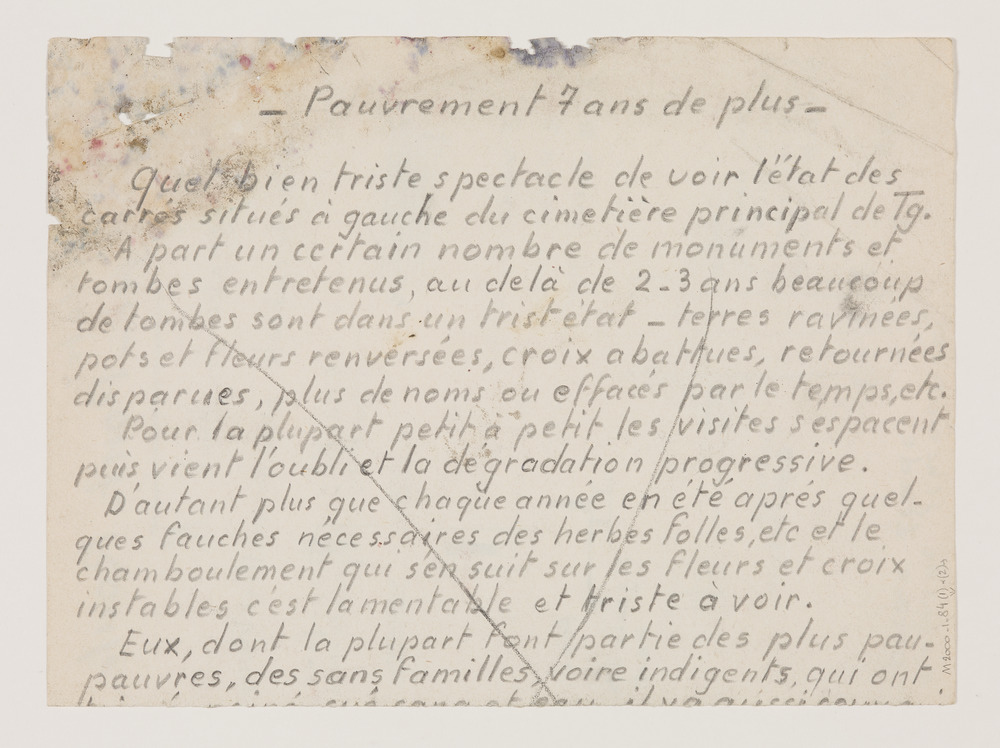 – Pauvrement 7 ans de plus –
Quel bien triste spectacle de voir l'état des
carrés situés à gauche du cimetière principal de Tg.
A part un certain nombre de monuments et
tombes entretenus, au delà de 2-3 ans beaucoup
de tombes sont dans un trist état – terres ravinées,
pots et fleurs renversées, croix abattues, retournées
disparues, plus de noms ou effacés par le temps, etc.
Pour la plupart petit à petit les visites s'espacent
puis vient l'oubli et la dégradation progressive.
D'autant plus que chaque année en été aprés quel-
ques fauches nécessaires des herbes folles, etc et le
chamboulement qui s'en suit sur les fleurs et croix
instables c'est lamentable et triste à voir.
Eux, dont la plupart font partie des plus pau-
pauvres, des sans familles, voire indigents, qui ont
sang et eau, il y a aussi
M2000-1-84(1)-(2)